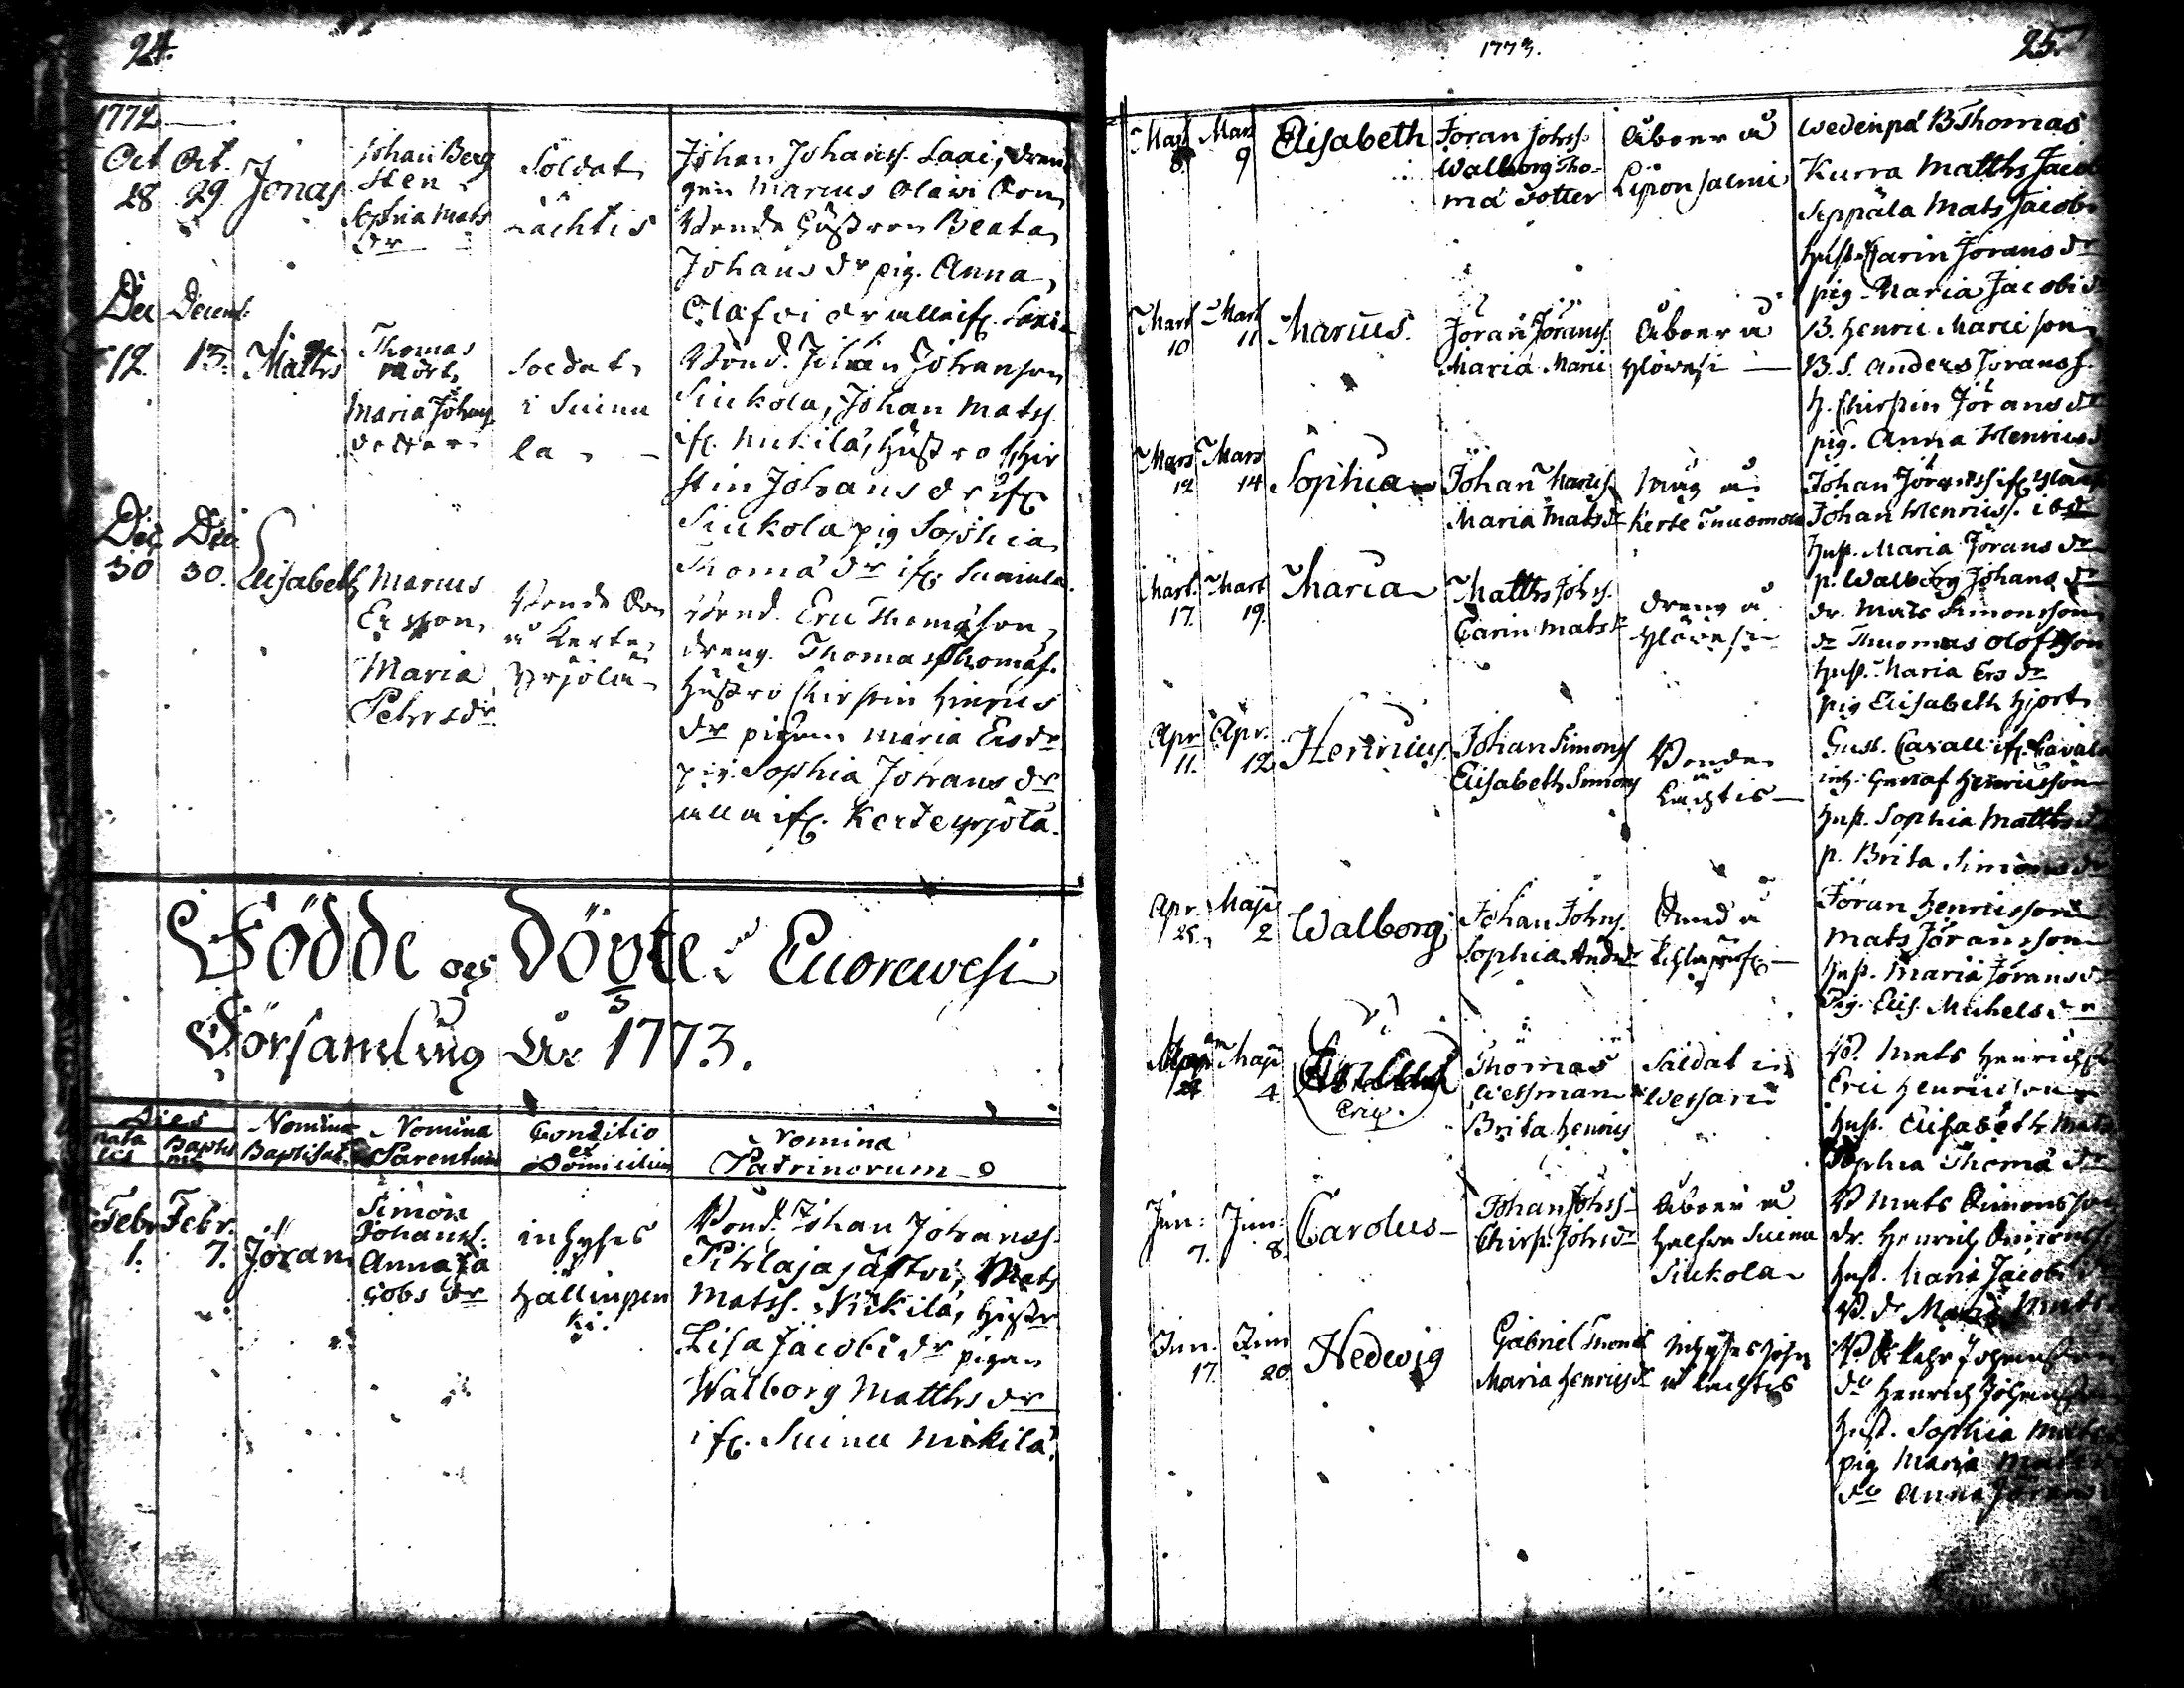 24.
1772
Oct 28 Oct. 29 Jonas
Johan Berg
sten
Sophia Mats
dr
Soldat
Lachtis
Johan Johanss. Laai, dren
gen Marcus Olavi
Bonde Hustron Beata
Johans dr pig. Anna
Olafvi dr alla if.
Dec 12. Decemb. 13. Matths
Thomas
Mört
Maria Johans
dotter
Soldat
i Suinu
la
Bond. Johan Johanson
Siukola, Johan Matss.
if. Nikilä, Hustro Chir
stin Johans dr if.
Siukola pig Sophia
Thomä dr if. Suinula.
Dec 30 Dec 30. Elisabeth
Marcus
Ersson
Maria
Pehrs dr
Bonde Son
å Kerte
Yrjölä
Bond. Eric Thomäson
dreng. Thomas Thomäs.
Hustro Chirstin Hinrics
dr pigan Maria Ers dr
pig. Sophia Johans dr
alla if. Kerte yrjölä.
Födde och Döpte i Euorawesi
Församling År 1773.
Dies
nata
lis
Baptis
mi
Nomina
Baptisat.
Nomina
Parentum
Conditio
et
Domicilium
Nomina
Patrinorum
Febr 1. Febr. 7. Jöran
Simon
Johanss.
Anna Ja
cobs dr
inhyses
Hällinpen
ki.
Bond. Johan Johanss.
Pihlajajastvi, Mats
Matss. Nikilä, Hustr
Lisa Jacobi dr pigan
Walborg Matths dr
if. Suinu Nikilä.
1773.
25.
Mart 8. Mars 9 Elisabeth
Jöran Johss.
Walborg Tho-
mä dotter
Åboer å
Wedenpä B Thomas
Kurra Matths Jacob
Seppälä Mats Jacobs
Hust. Carin Jörans dr
pig. Maria Jacobi dr
Mart 10 Mart 11 Marcus.
Jöran Jöranss.
Maria Marci
Åboer å
Ylöwesi
B. Henric Marci son
B. S. Anders Jöranss.
H. Chirstin Jörans dr
pig. Anna Henrics
Mars 12 Mars 14 Sophia
Johan Marcuss.
Maria Mats dr
Måg å
Kerte Tuuomola
Johan Jöranss if.
Johan Henricss. ibd
Hust. Maria Jörans dr
p. Walborg Johans dr
Mart. 17. Mart 19. Maria
Matths Johss.
Carin Mats dr
dreng å
Ylöwesi
dr. Mats Simonsson
dr Thuomas Olofsson
Hust. Maria Ers dr
pig Elisabeth Hjort
Apr 11. Apr. 12. Henricus.
Johan Simonss
Elisabeth Simons
Bonde
å
Lachtis
Gust. Cavall if.
inh. Gustaf Henricsson
Hust. Sophia Matths
p. Brita Simons dr
Apr. 25. Maji 2 Walborg
Johan Johss.
Sophia And dr
Jöran Henricsson
Mats Jöransson
Hust. Maria Jörans dr
Pig. Elis. Michels dr
Maji 4
Eric.
Thomas
Wessman
Brita Henrics
Saldat i
Wessari
B. Mats Henricss
Eric Henricsson
Hust. Elisabeth Mats
Sophia Thomä dr
Jun: 7. Jun: 8. Carolus
Johan Johss
Chirst. Johs dr
Åboer å
Halfva Suinu
Siukola
B Mats Simonsson
dr. Henrich Simonss
Hust. Maria Jacobi
B. dr Maria Mats
Jun. 17 Jun 20. Hedwig
Gabriel Thomäs
Maria Henrics dr
Inhyses hjon
å Lachtis
B. Pehr Johansson
do Henrich Johansson
Hust. Sophia Mats
pig Maria Mats
do Anna Jörans